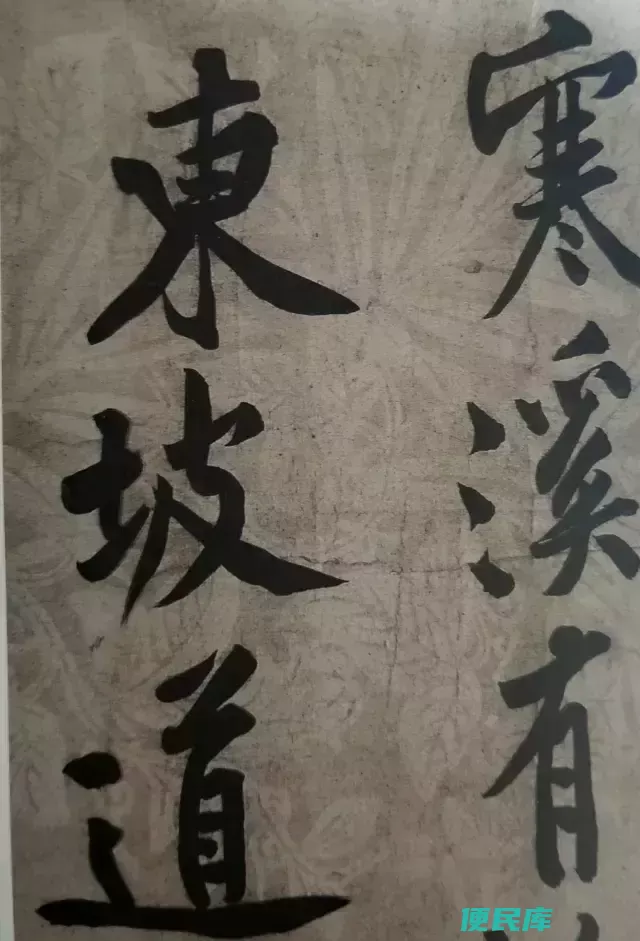 寒溪有
東坡道
便民库